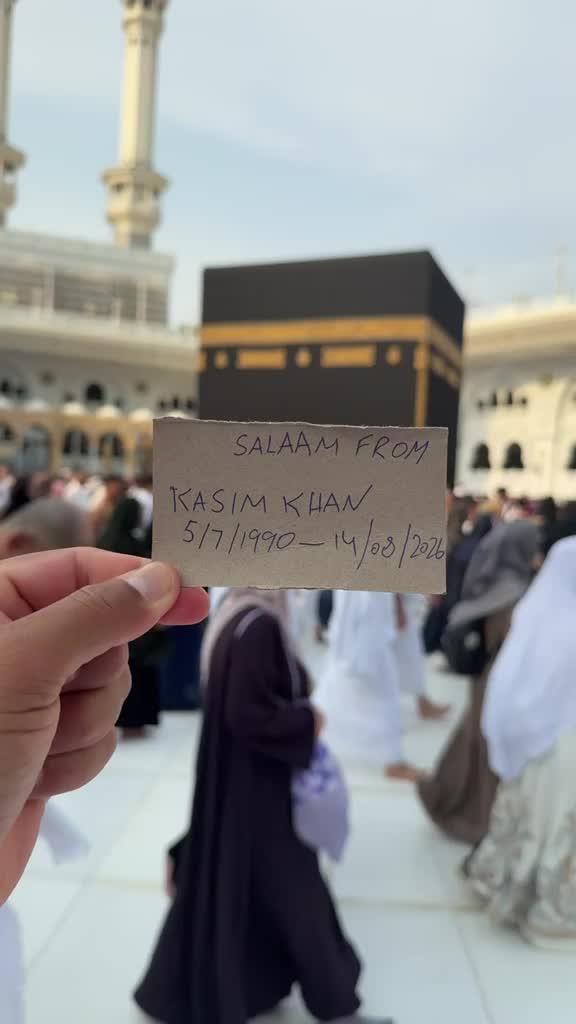 SALAAM FROM
KASIM KHAN
5/7/1990 — 14/08/2026